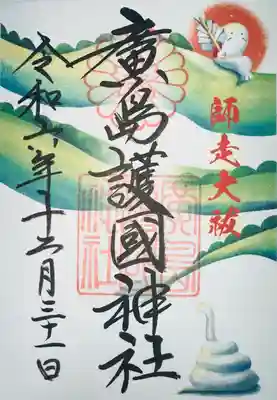 師走大祓
廣島護國神社
令和六年十二月三十一日